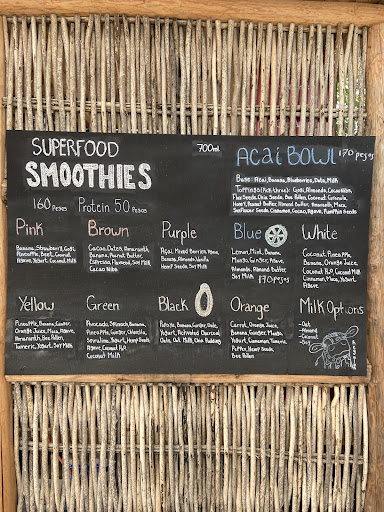 SUPERFOOD
SMOOTHIES
700ml
160 pesos
Protein 50 pesos
Acai BOWL 170 pesos
Base: Acai, Banana, Blueberries, Date, Milk
Toppings (Pick three): Goji, Almonds, Cacao Nibs,
Flax Seeds, Chia Seeds, Bee Pollen, Coconut, Granola,
Honey, Peanut Butter, Almond Butter, Amaranth, Maca,
Sunflower Seeds, Cinnamon, Cacao, Agave, Pumpkin Seeds
Pink
Banana, Strawberry, Goji,
Pineapple, Beet, Coconut
Agave, Yogurt, Coconut Milk
Brown
Cacao, Dates, Amaranth,
Banana, Peanut Butter,
Espresso, Flaxseed, Soy Milk
Cacao Nibs
Purple
Acai, Mixed Berries, Agave,
Banana, Almonds, Vanilla
Hemp Seeds, Soy Milk
Blue
Lemon, Mint, Banana,
Mango, Ginger, Agave
Almonds, Almond Butter
Soy Milk
170 pesos
White
Coconut, Pineapple,
Banana, Orange Juice,
Coconut H2O, Coconut Milk
Cinnamon, Maca, Yogurt
Agave
Yellow
Pineapple, Banana, Ginger,
Orange Juice, Maca, Agave,
Amaranth, Bee Pollen,
Turmeric, Yogurt, Soy Milk
Green
Avocado, Spinach, Banana,
Pineapple, Ginger, Chlorella,
Spirulina, Yogurt, Hemp Seeds,
Agave, Coconut H2O
Coconut Milk
Black
Papaya, Banana, Ginger, Date,
Yogurt, Activated Charcoal,
Oats, Oat Milk, Chia Pudding
Orange
Carrot, Orange Juice,
Mango, Banana, Ginger,
Yogurt, Cinnamon, Turmeric,
Pepper, Hemp Seeds,
Bee Pollen
Milk Options
-Oat
-Almond
-Coconut
-Soy